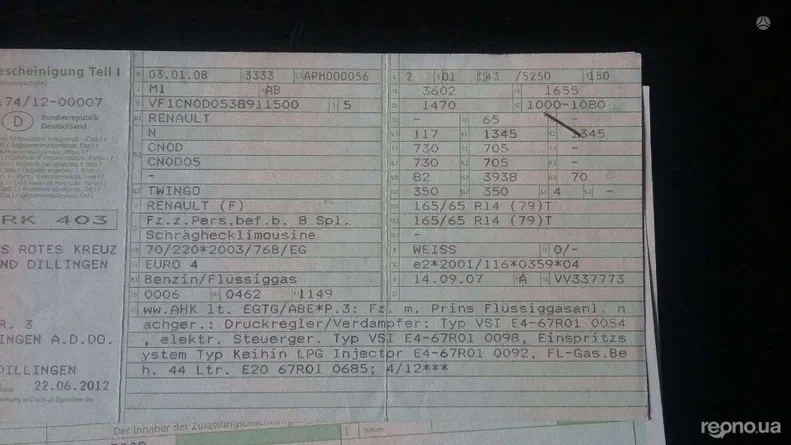 escheinigung Teil I
03.01.08 3333 APM000056
2 01 43 /5250 150
M1 AB
3602 1655
174/12-00007
VF1CN0D0538911500 5
1470 1000-1080
D Bundesrepublik
Deutschland
RENAULT
- 65 -
N
117 1345 1345
CN0D
730 705 -
CN0D05
730 705 -
-
82 3938 70
TWINGO
350 350 4 -
RENAULT (F)
165/65 R14 (79)T
RK 403
Fz.z.Pers.bef.b. 8 Spl.
165/65 R14 (79)T
Schräghecklimousine
-
S ROTES KREUZ
70/220*2003/76B/EG
WEISS 0/-
ND DILLINGEN
EURO 4
e2*2001/116*0359*04
Benzin/Flüssiggas
14.09.07 A VV337773
0006 0462 1149
ww.AHK lt. EGTG/ABE*P.3: Fz. m. Prins Flüssiggasanl. n
R. 3
achger.: Druckregler/Verdampfer: Typ VSI E4-67R01 0054
NGEN A.D.DO.
, elektr. Steuerger. Typ VSI E4-67R01 0098, Einspritzs
ystem Typ Keihin LPG Injector E4-67R01 0092, FL-Gas.Be
DILLINGEN
h. 44 Ltr. E20 67R01 0685; 4/12***
22.06.2012
Der Inhaber der
reono.ua